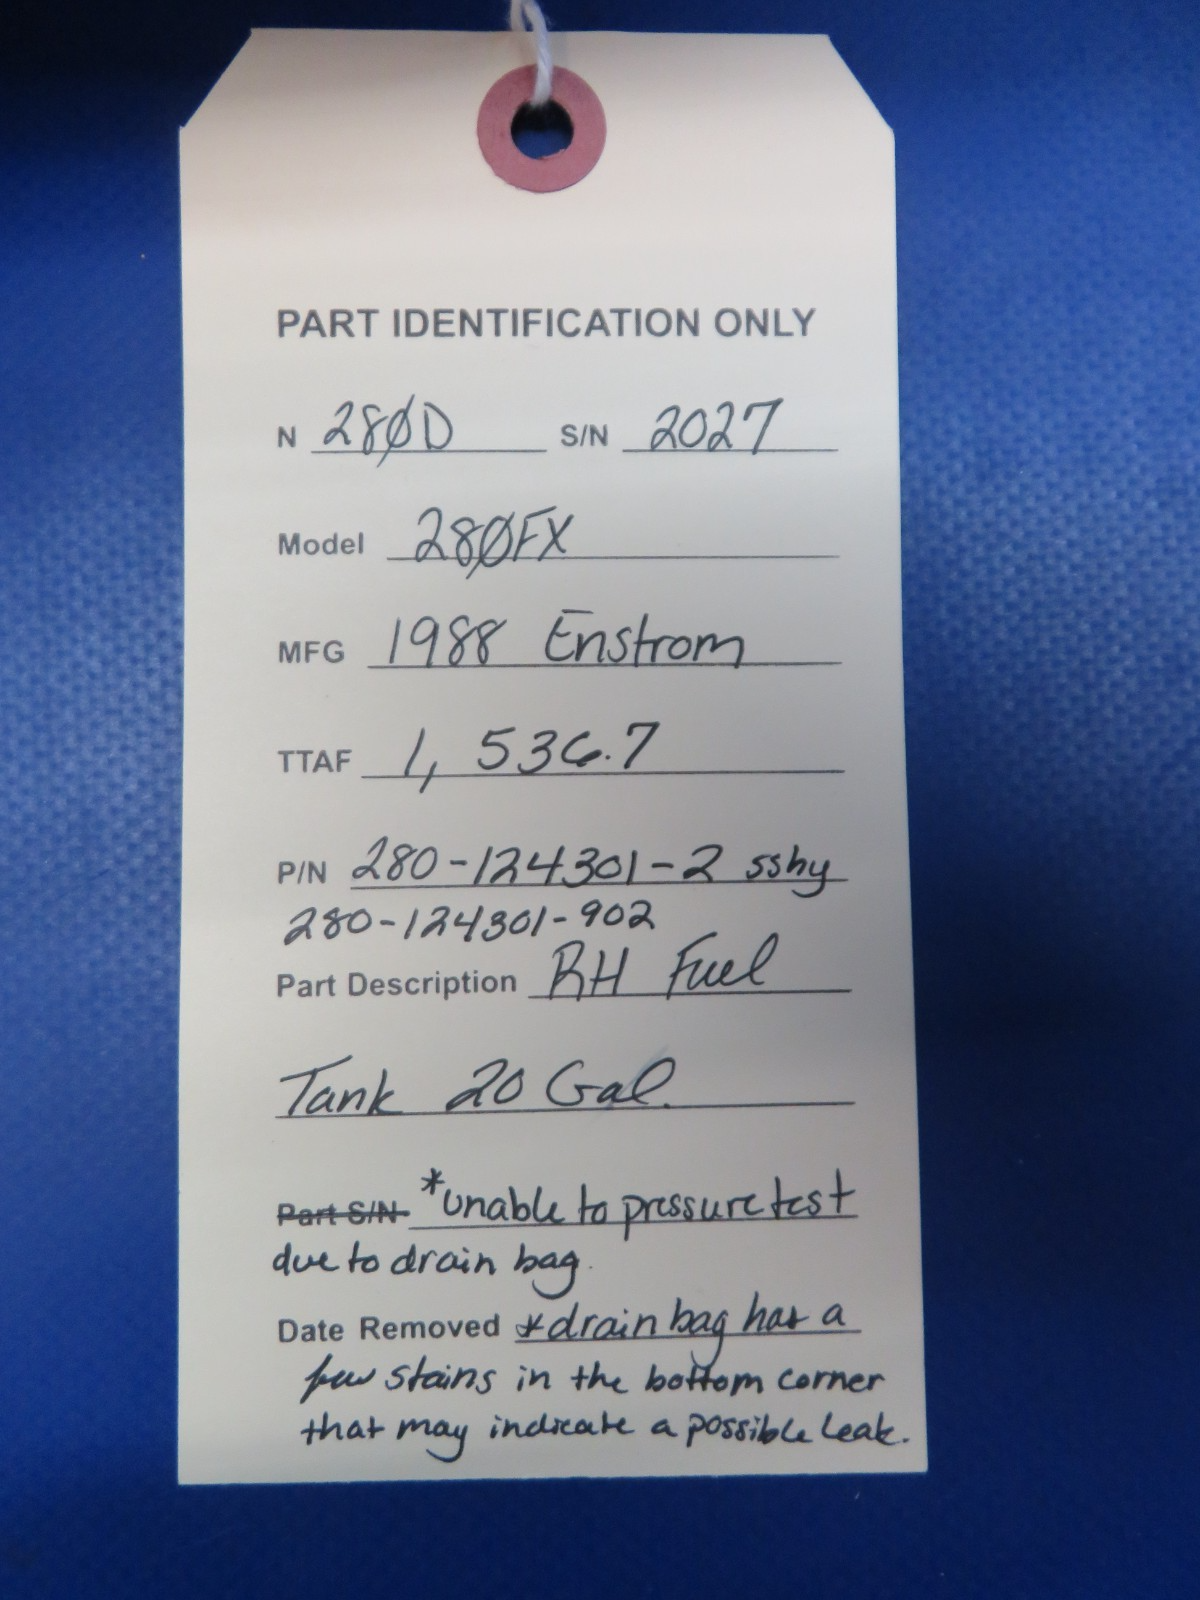 PART IDENTIFICATION ONLY
N 28ØD S/N 2027
Model 28ØFX
MFG 1988 Enstrom
TTAF 1,536.7
P/N 280-124301-2 ssby
280-124301-902
Part Description RH Fuel
Tank 20 Gal.
Part S/N *unable to pressure test
due to drain bag.
Date Removed *drain bag has a
few stains in the bottom corner
that may indicate a possible leak.